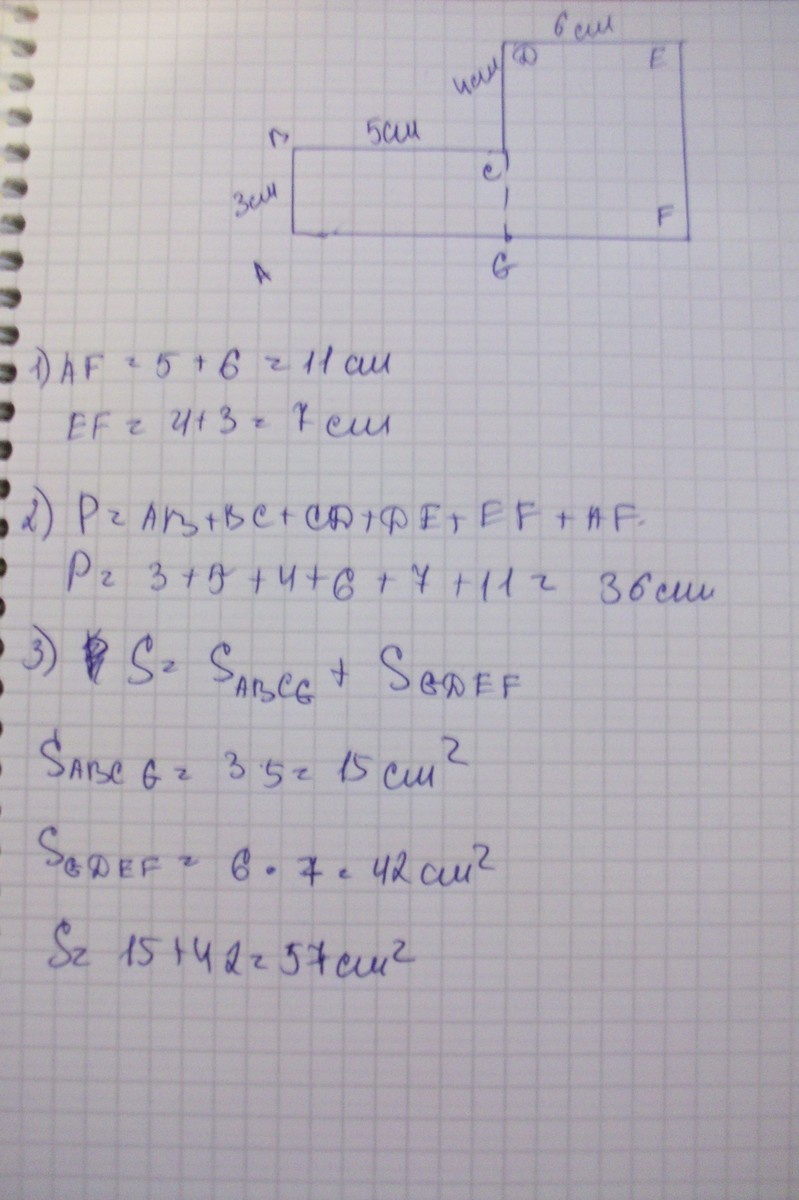 6 см
D E
4см
5см
B
C
3см
F
A
G
1) AF = 5 + 6 = 11 см
EF = 4+3 = 7 см
2) P = AB+BC+CD+DE+EF+AF.
P = 3+5+4+6+7+11 = 36см
3) S = S ABCG + S GDEF
S ABCG = 3·5 = 15 см²
S GDEF = 6·7 = 42 см²
S = 15+42 = 57 см²